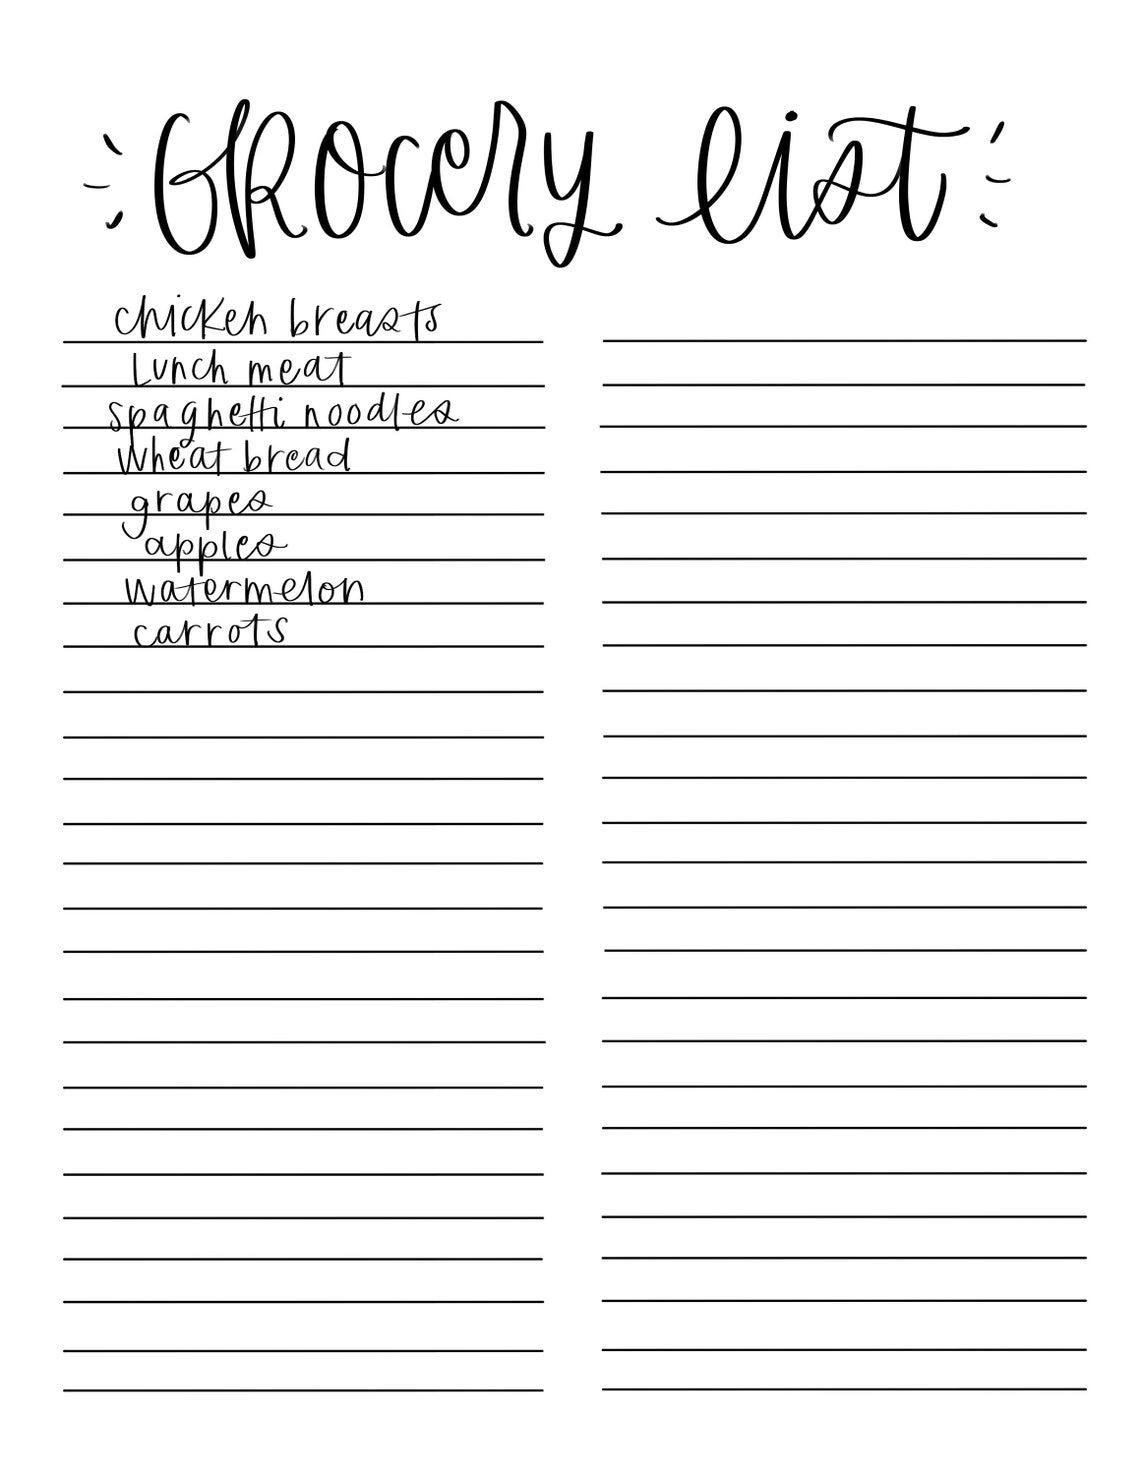 Grocery list
chicken breasts
Lunch meat
spaghetti noodles
wheat bread
grapes
apples
watermelon
carrots